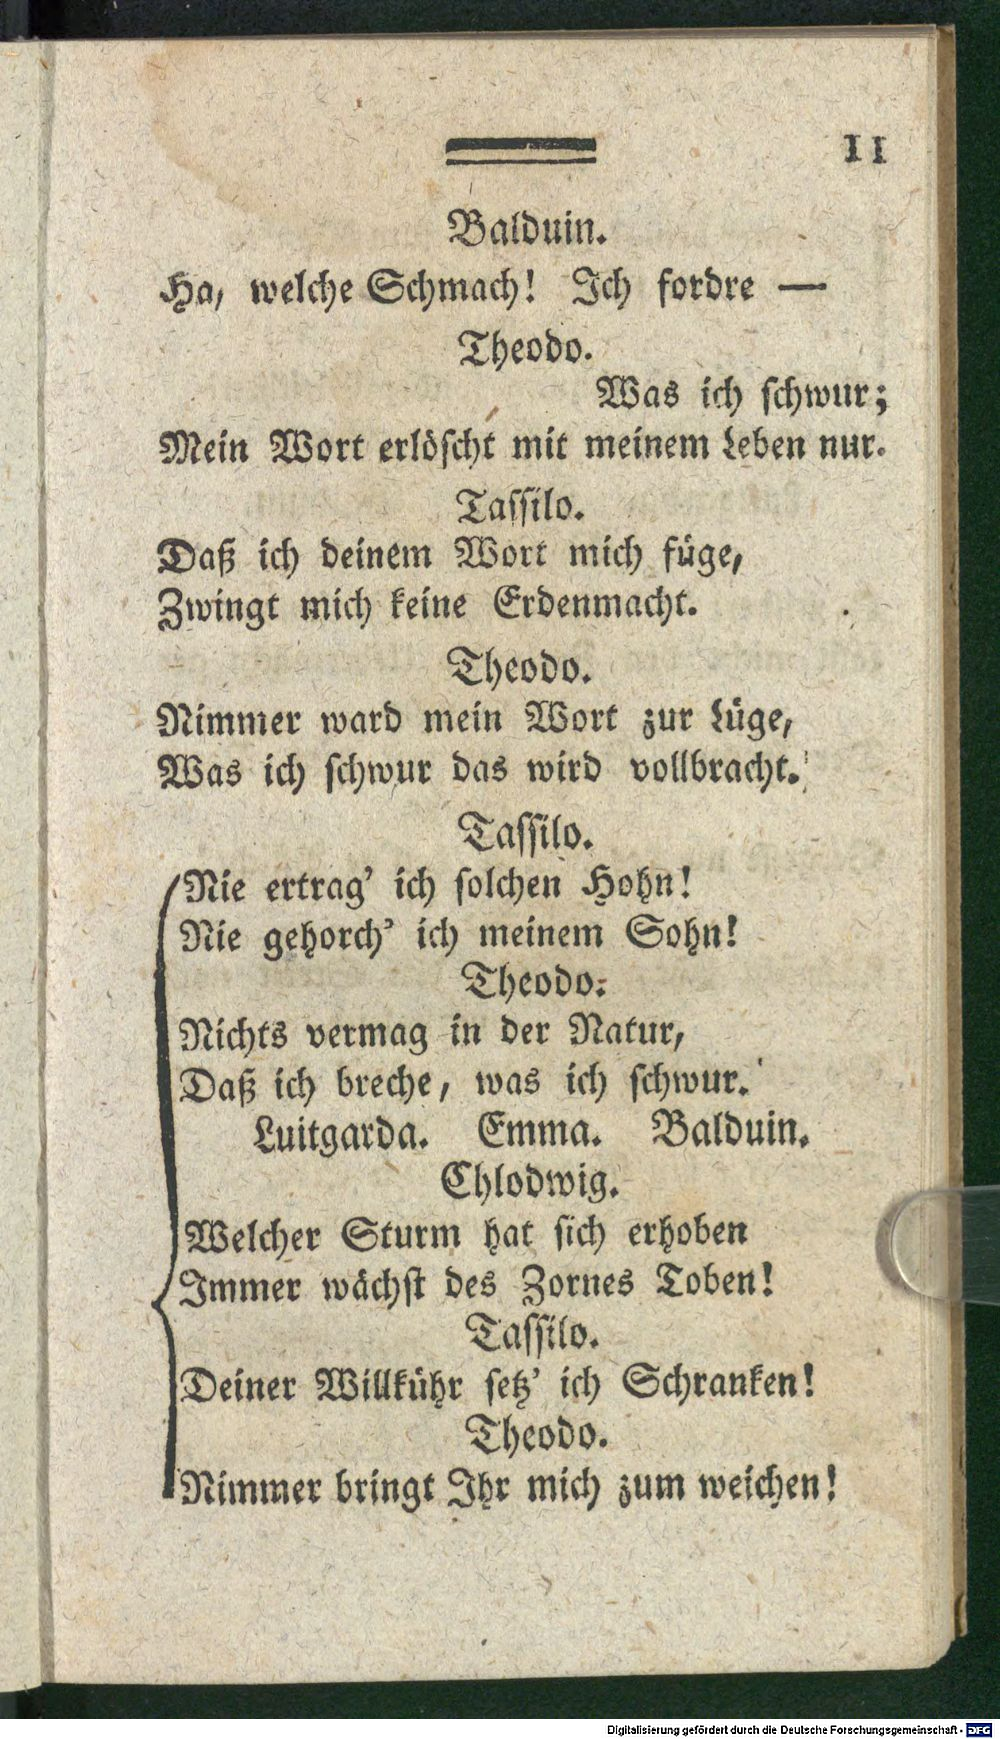 11
Balduin.
Ha, welche Schmach! Ich fordre —
Theodo.
Was ich schwur;
Mein Wort erlöscht mit meinem Leben nur.
Tassilo.
Daß ich deinem Wort mich füge,
Zwingt mich keine Erdenmacht.
Theodo.
Nimmer ward mein Wort zur Lüge,
Was ich schwur das wird vollbracht.
Tassilo.
Nie ertrag' ich solchen Hohn!
Nie gehorch' ich meinem Sohn!
Theodo.
Nichts vermag in der Natur,
Daß ich breche, was ich schwur.
Luitgarda. Emma. Balduin.
Chlodwig.
Welcher Sturm hat sich erhoben
Immer wächst des Zornes Toben!
Tassilo.
Deiner Willkühr setz' ich Schranken!
Theodo.
Nimmer bringt Ihr mich zum weichen!
Digitalisierung gefördert durch die Deutsche Forschungsgemeinschaft - DFG